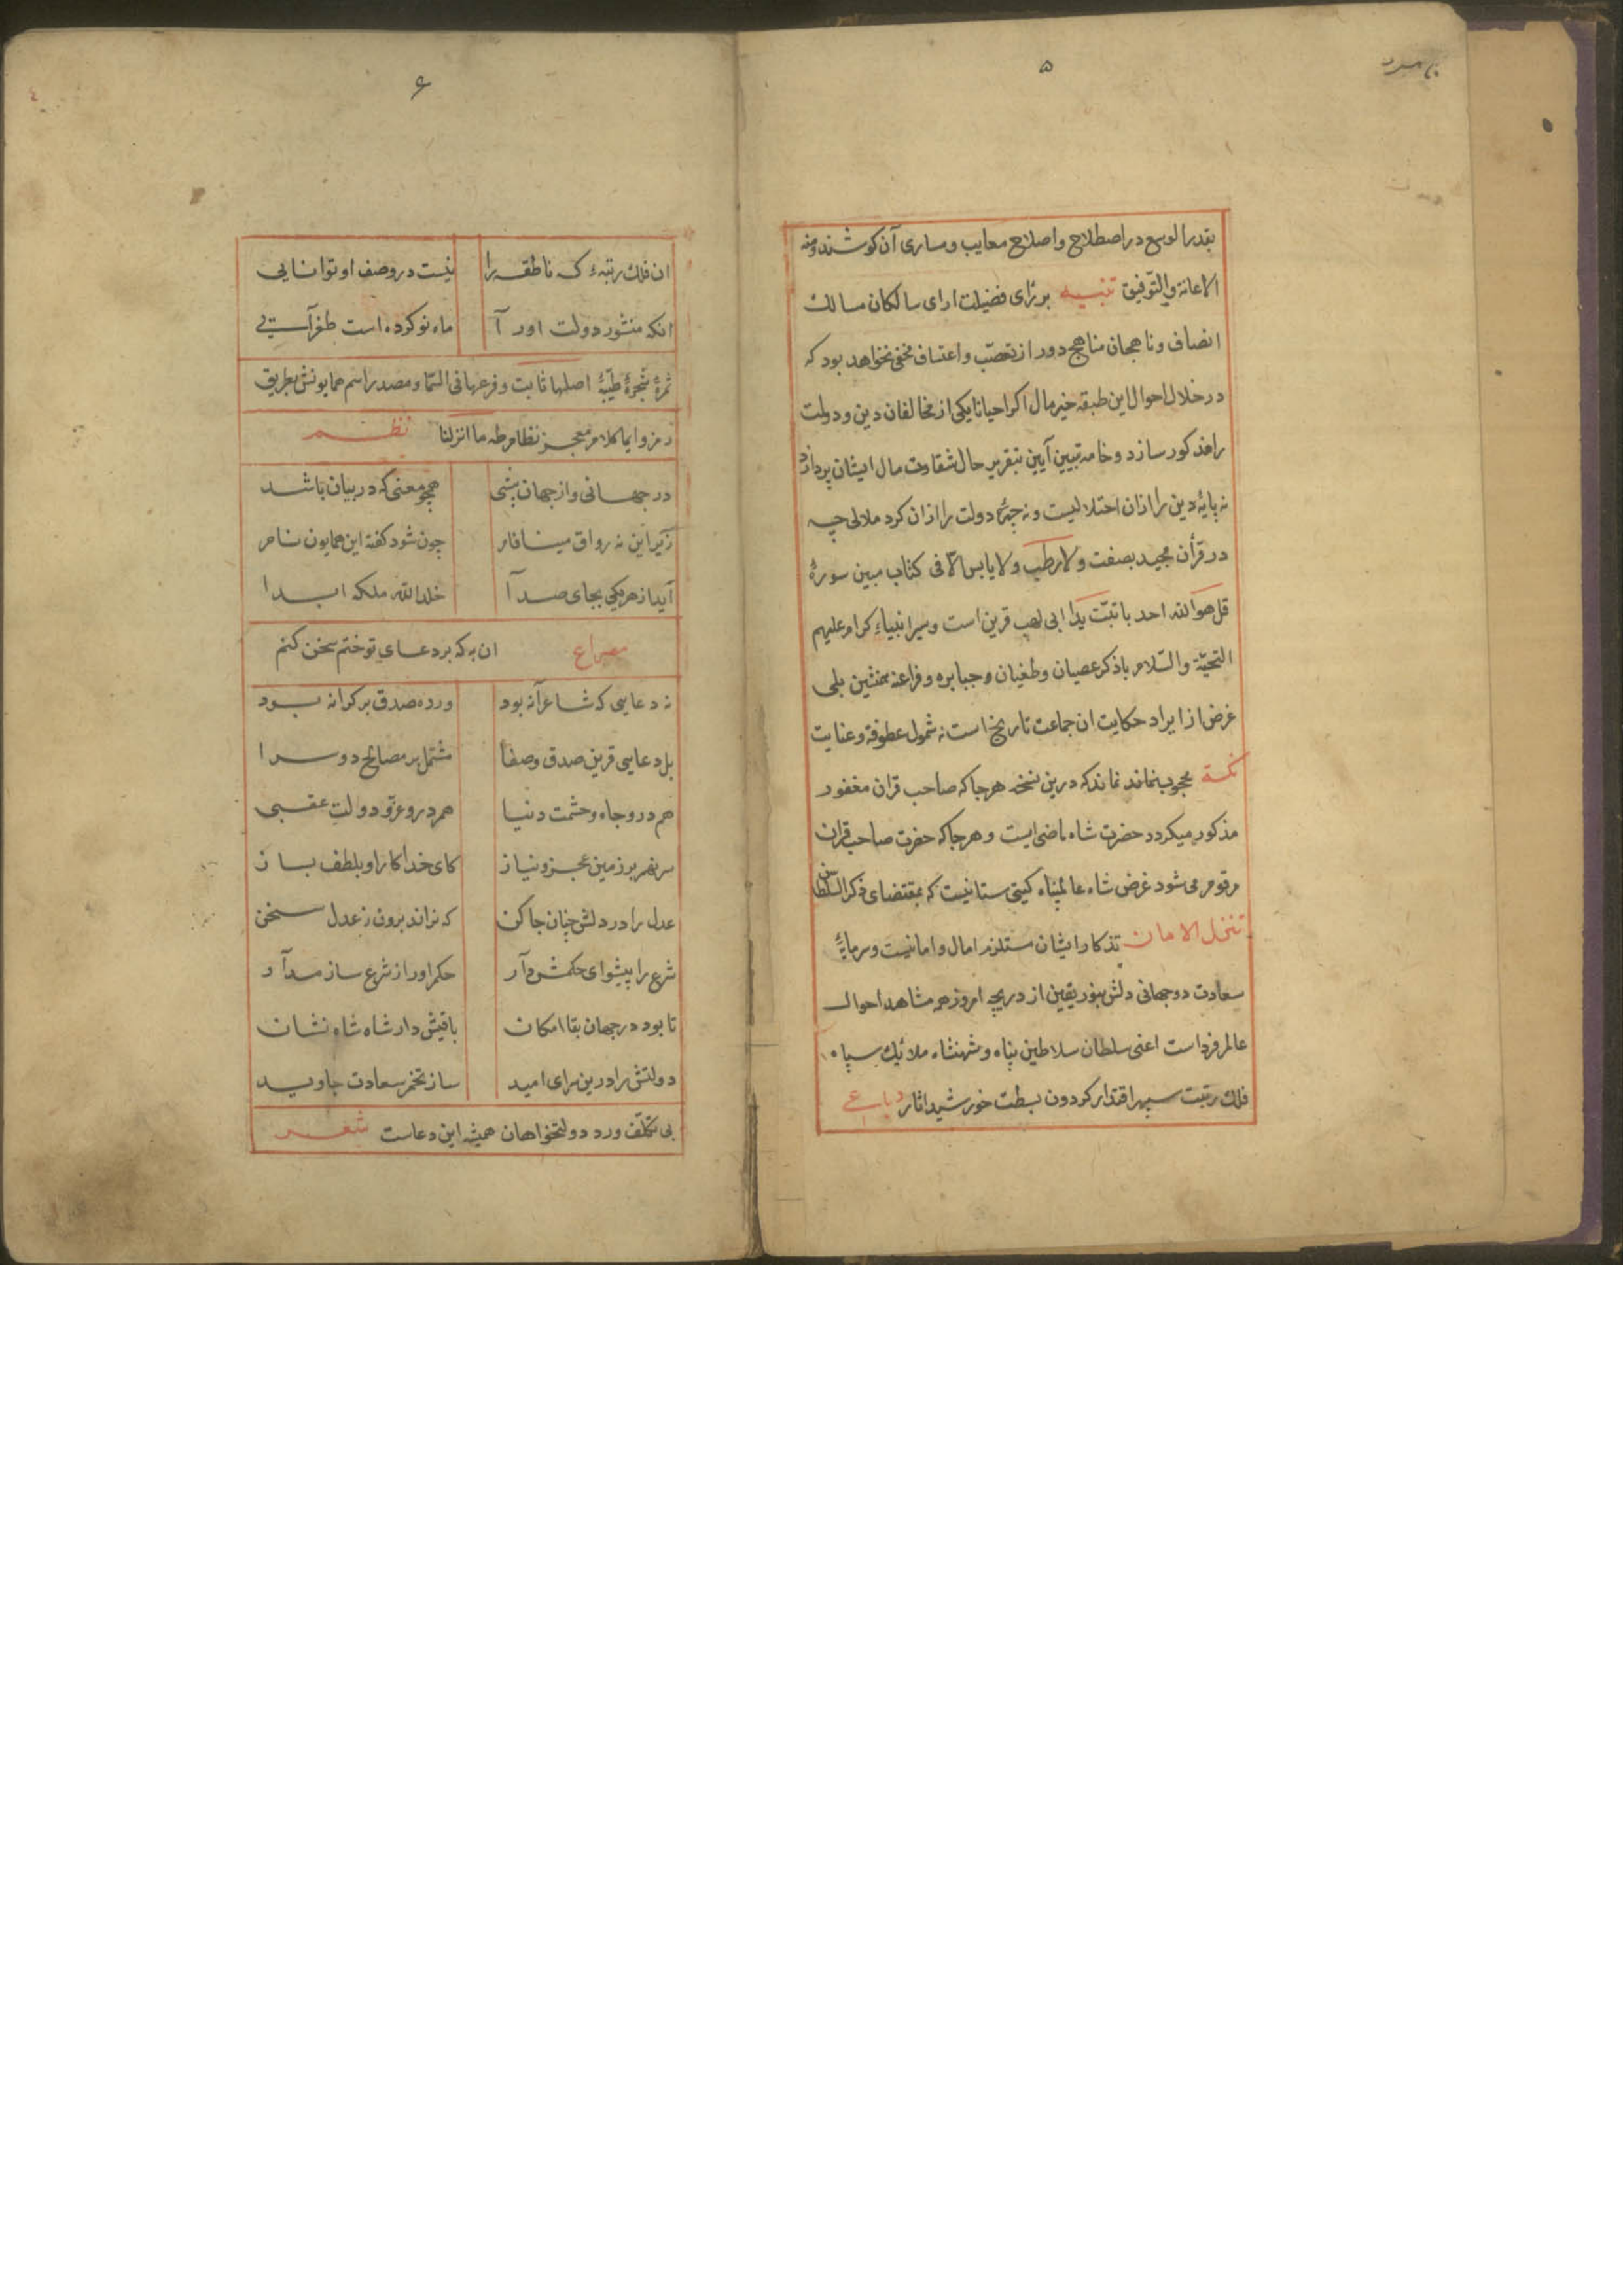 ۵
بقدر الوسع در اصطلاح و اصلاح معایب و مساوی آن کوشند و منه
الاعانة والتوفیق تنبیه بر رای فضیلت ارای سالکان مسالک
انصاف و ناهجان مناهج دور از تعصّب و اعتساف مخفی نخواهد بود که
در خلال احوال این طبقه خیر مال اکر احیانا یکی از مخالفان دین و دولت
را مذکور سازد و خامه تبیین آیین بتقریر حال شقاوت مال ایشان پردازد
نه پایهٔ دین را ازان اختلالیست و نه چهرهٔ دولت را ازان کرد ملالی چه
در قرأن مجید بصفت ولا رطب ولا یابس الّا فی کتاب مبین سورهٔ
قل هو الله احد با تبّت یدا ابی لهب قرین است و سیر انبیاء کرام علیهم
التحیّة والسّلام با ذکر عصیان و طغیان و جبابره و فراعنه همنشین بلی
غرض از ایراد حکایت ان جماعت تاریخ است نه شمول عطوفة و عنایت
نکته محجوب نماند که درین نسخه هر جا که صاحب قران مغفور
مذکور میکردد حضرت شاه ماضی ایست و هر جا که حضرت صاحب قران
مرقوم می شود غرض شاه عالمپناه کیتی ستانیست که بمقتضای ذکر السّلطان
تنزل الامان تذکار ایشان مستلزم امال و امانیست و سرمایهٔ
سعادت دو جهانی دلش بنور یقین از دریچه امروز همه مشاهد احوال
عالم فرداست اعنی سلطان سلاطین پناه و شهنشاه ملائیک سپاه
فلک رتبت سپهر اقتدار کردون بسطت خورشید اثار رباعی
۶
ان فلک رتبهٔ که ناطقه را نیست در وصف او توانایی
انکه منشور دولت اور آ ماه نو کرده است طغرآیی
ثمرهٔ شجرهٔ طیّبهٔ اصلها ثابت و فرعها فی السّما و مصدر اسم همایونش بطریق
رمز و ایما کلام معجز نظام طه ما انزلنا نظم
در جهانی و از جهان بیشی همچو معنی که در بیان باشد
زیر این نه رواق مینا فام چون شود کفته این همایون نام
آید از هر یکی بجای صدآ خلد الله ملکه ابدا
مصراع ان به که بر دعای تو ختم سخن کنم
نه دعایی که شاعرآنه بود ورد صدق بر کرانه بود
بل دعایی قرین صدق و صفا مشتمل بر مصالح دو سرا
هم درو جاه و حشمت دنیا هم درو عزّ و دولت عقبی
سر نهم بر زمین عجز و نیاز کای خدا کار او بلطف بساز
عدل را در دلش چنان جا کن که نراند برون ز عدل سخن
شرع را پیشوای حکمش دآر حکم اور از شرع ساز مدآر
تا بود در جهان بقا امکان باقیش دار شاه شاه نشان
دولتش را درین سرای امید ساز تخم سعادت جاوید
بی تکلّف ورد دولتخواهان همیشه این دعاست شعر